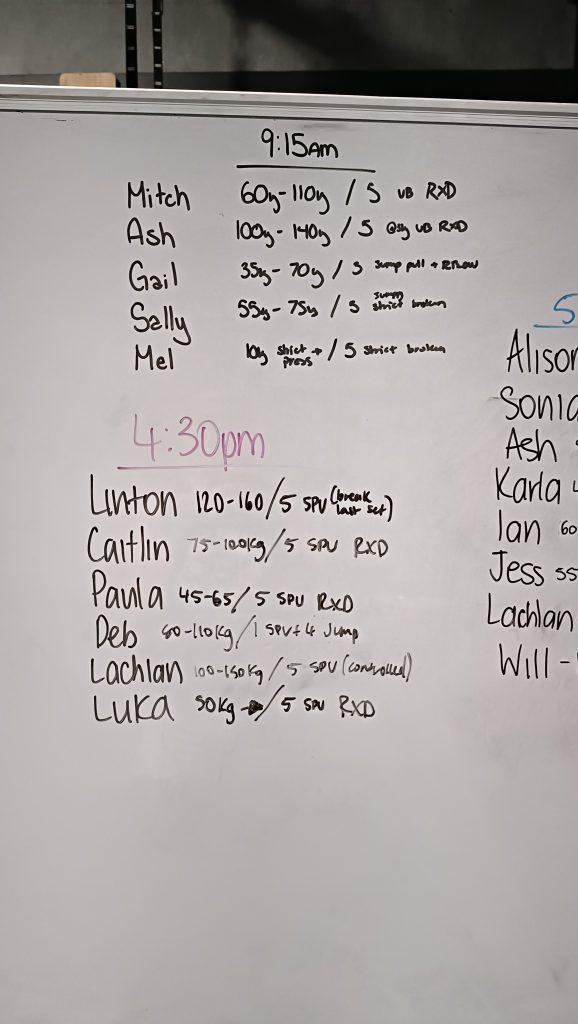 9:15AM
Mitch 60kg-110kg / 5 UB RXD
Ash 100kg-140kg / 5 UB RXD
Gail 35kg-70kg / 5 Jump pull +
Sally 55kg-75kg / 5 Jump strict broken
Mel 10kg strict press / 5 strict broken
4:30pm
Linton 120-160/5 SPU (break last set)
Caitlin 75-100kg/5 SPU RXD
Paula 45-65/5 SPU RXD
Deb 60-110kg/1 SPU + 4 Jump
Lachlan 100-150kg/5 SPU (controlled)
Luka 50kg → /5 SPU RXD
5
Alison
Sonia
Ash
Karla 4
Ian 60
Jess 55
Lachlan
Will -